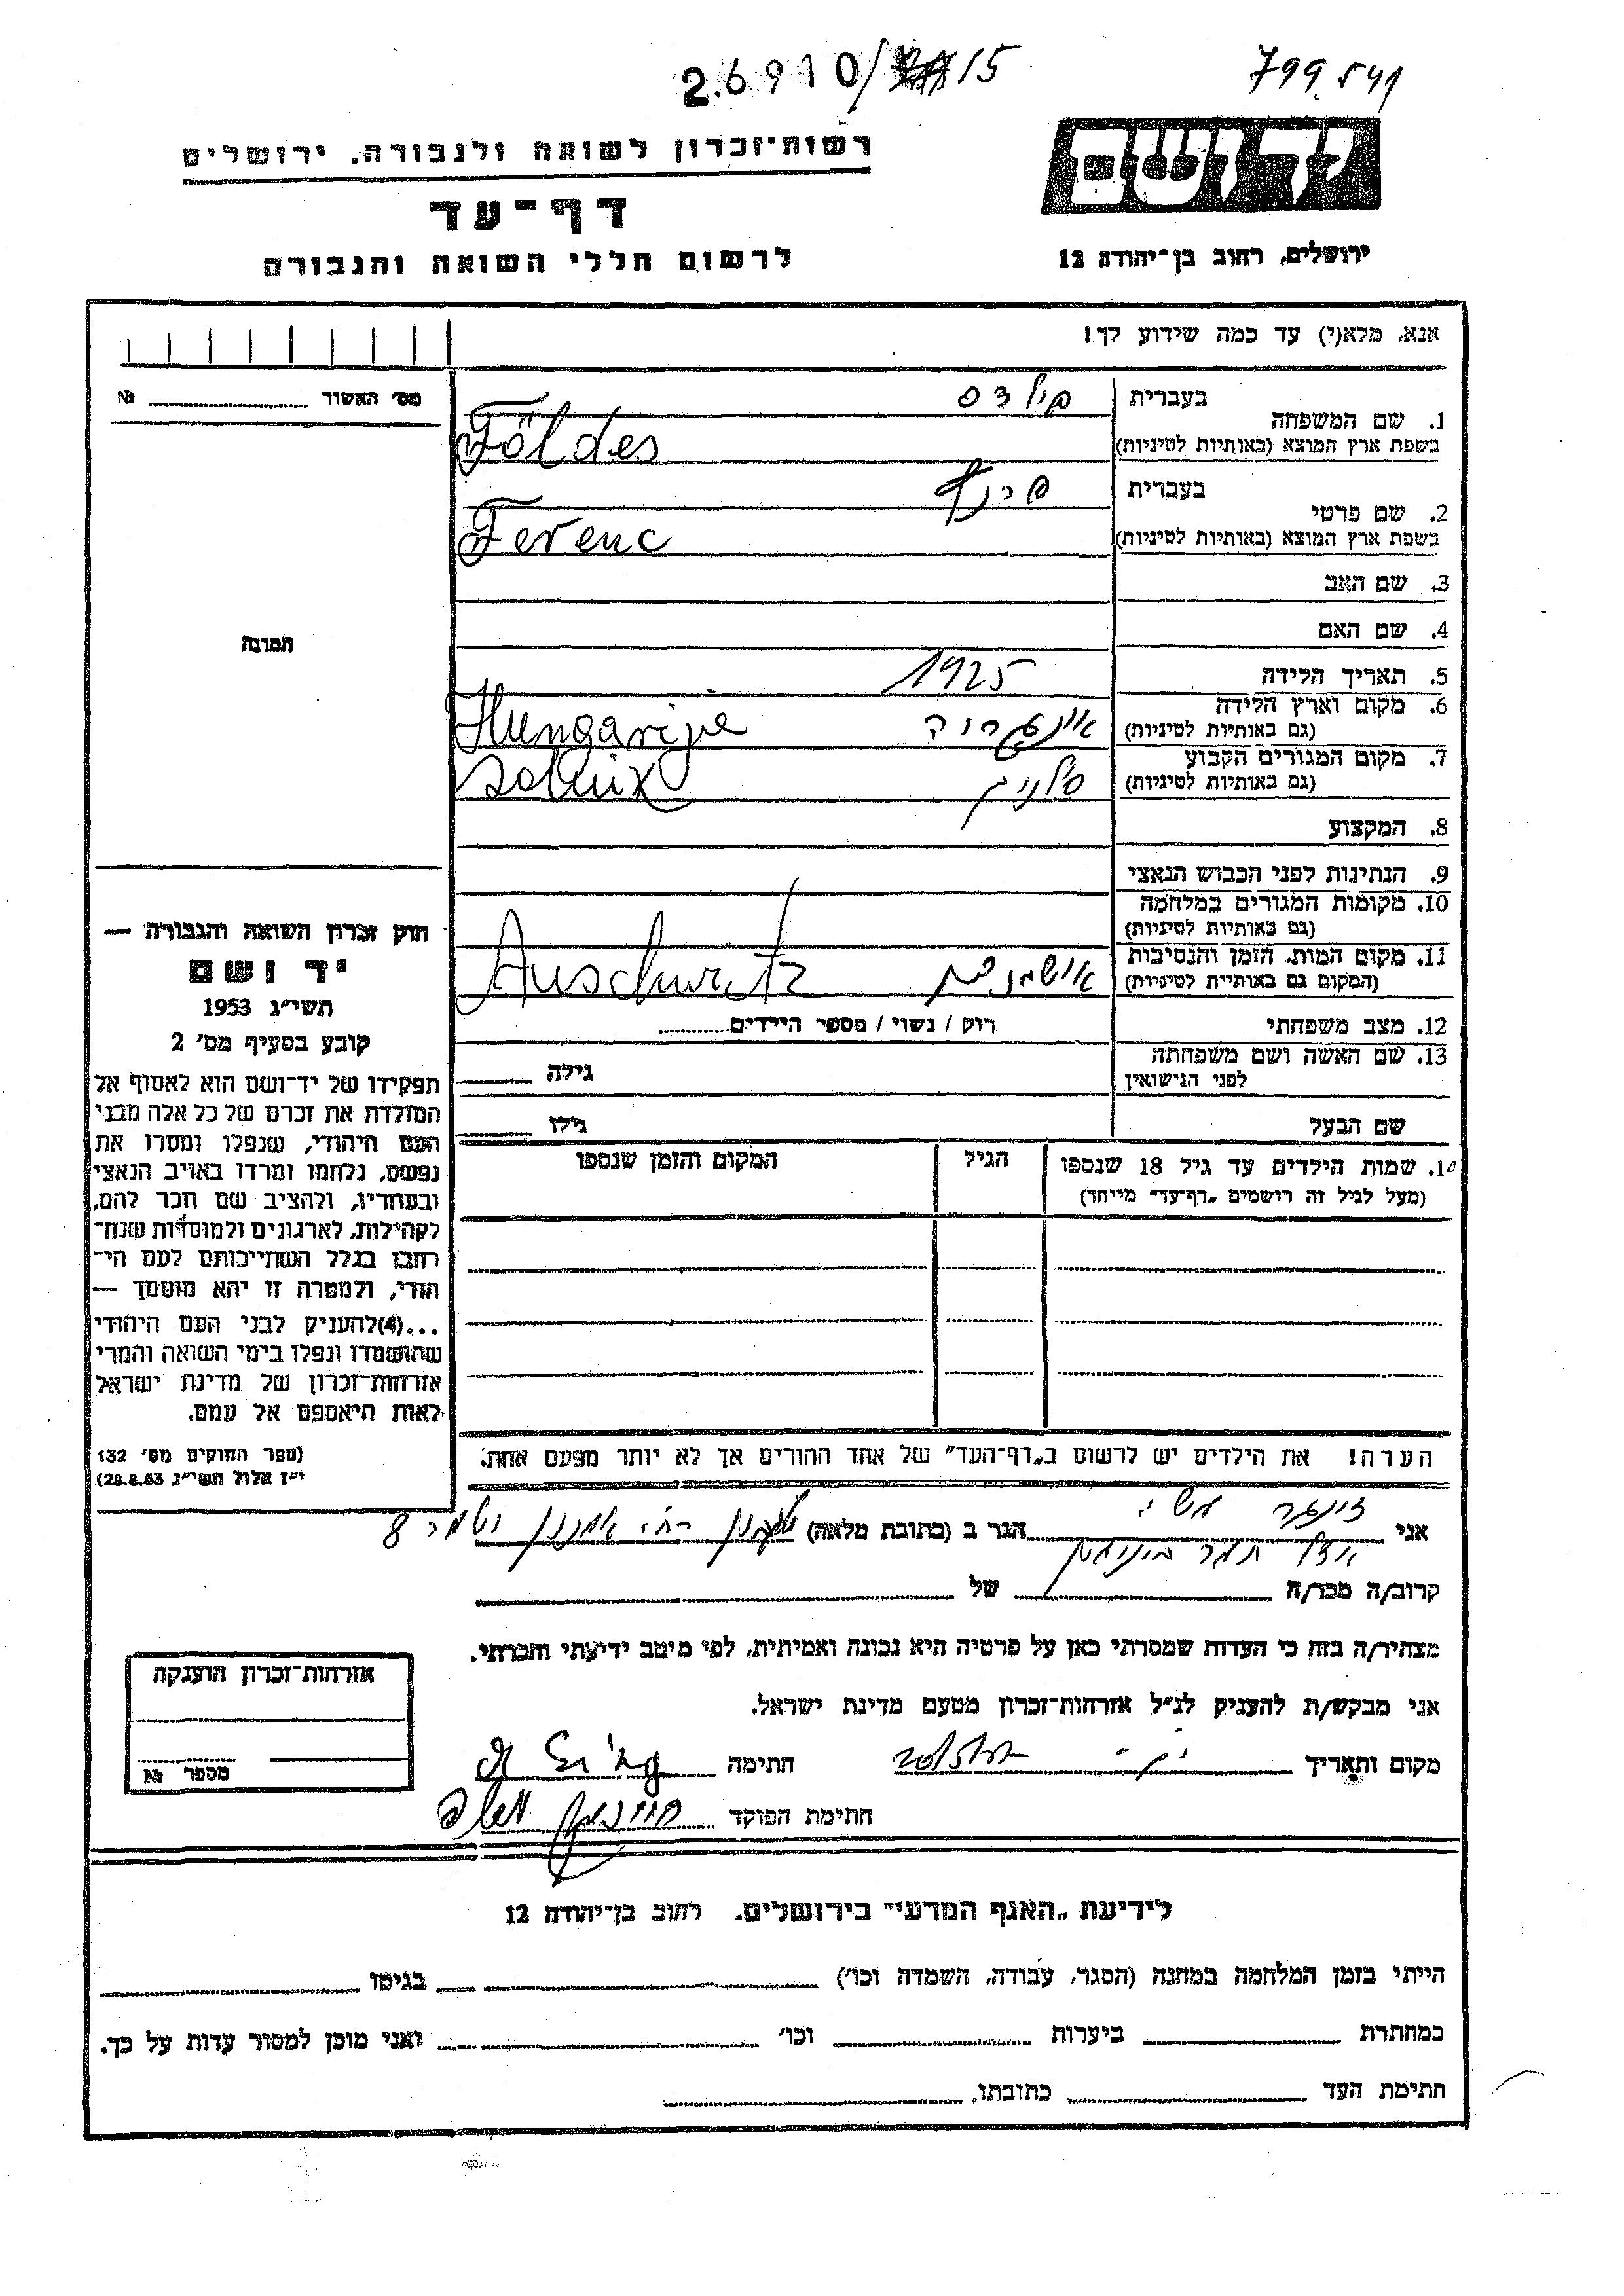 26910/15
799541
רשות־זכרון לשואה ולגבורה, ירושלים
דף־עד
לרשום חללי השואה והגבורה
יד ושם
ירושלים, רחוב בן־יהודה 12
אנא, מלא(י) עד כמה שידוע לך!
מס' האשור № 
1. שם המשפחה
בעברית פילדס
בשפת ארץ המוצא (באותיות לטיניות) Földes
2. שם פרטי
בעברית פרנץ
בשפת ארץ המוצא (באותיות לטיניות) Ferenc
3. שם האב
4. שם האם
תמונה
5. תאריך הלידה 1925
6. מקום וארץ הלידה
(גם באותיות לטיניות) Hungarije
7. מקום המגורים הקבוע
(גם באותיות לטיניות)
8. המקצוע
9. הנתינות לפני הכבוש הנאצי
10. מקומות המגורים במלחמה
(גם באותיות לטיניות)
11. מקום המות, הזמן והנסיבות
(המקום גם באותיות לטיניות) אושוויץ Auschwitz
12. מצב משפחתי רוק / נשוי / מספר הילדים
13. שם האשה ושם משפחתה
לפני הנישואין גילה
שם הבעל גילו
חוק זכרון השואה והגבורה —
יד ושם
תשי״ג 1953
קובע בסעיף מס' 2
תפקידו של יד־ושם הוא לאסוף אל
המולדת את זכרם של כל אלה מבני
העם היהודי, שנפלו ומסרו את
נפשם, נלחמו ומרדו באויב הנאצי
ובעוזריו, ולהציב שם וזכר להם,
לקהילות, לארגונים ולמוסדות שנח־
רבו בגלל השתייכותם לעם הי־
הודי, ולמטרה זו יהא מוסמך —
...(4)להעניק לבני העם היהודי
שהושמדו ונפלו בימי השואה והמרי
אזרחות־זכרון של מדינת ישראל
לאות היאספם אל עמם.
(ספר החוקים מס' 132
י״ז אלול תשי״ג 28.8.53)
10. שמות הילדים עד גיל 18 שנספו
(מעל לגיל זה רושמים „דף־עד״ מייחד)
הגיל
המקום והזמן שנספו
הערה! את הילדים יש לרשום ב„דף־העד״ של אחד ההורים אך לא יותר מפעם אחת.
אני זינגר הגר ב (כתובת מלאה) 8
קרוב/ה מכר/ה של
מצהיר/ה בזה כי העדות שמסרתי כאן על פרטיה היא נכונה ואמיתית, לפי מיטב ידיעתי והכרתי.
אני מבקש/ת להעניק לנ״ל אזרחות־זכרון מטעם מדינת ישראל.
מקום ותאריך חתימה
חתימת הפוקד
אזרחות־זכרון הוענקה
מספר №
לידיעת „האגף המדעי״ בירושלים. רחוב בן־יהודה 12
הייתי בזמן המלחמה במחנה (הסגר, עבודה, השמדה וכו') בגיטו
במחתרת ביערות וכו' ואני מוכן למסור עדות על כך.
חתימת העד כתובתו,